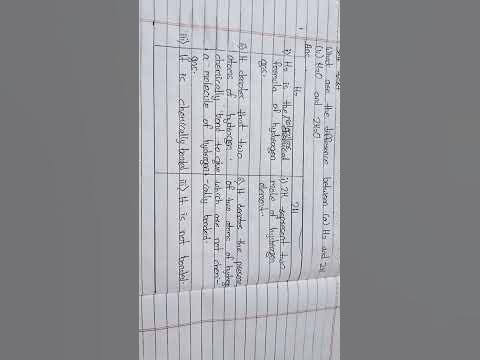 What are the difference between (a) H₂ and 2H
(b) H₂O and 2H₂O
Ans:
H₂
i) H₂ is the molecular
formula of hydrogen
gas.
ii) It denotes that two
atoms of hydrogen
chemically bond to give
a molecule of hydrogen
gas.
iii) It is chemically bonded
2H
i) 2H represent two
mole of hydrogen
element.
ii) It denotes the presence
of two atoms of hydrog
which are not chemi-
-cally bonded.
iii) It is not bonded.